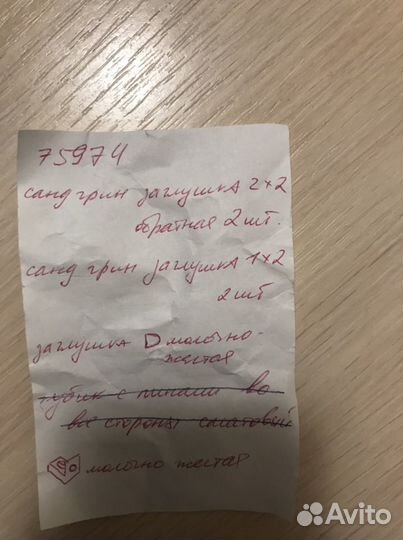 75974
санд грин заглушка 2×2
обратная 2 шт.
санд грин заглушка 1×2
2 шт
заглушка D молочно-
желтая
кубик с пинами во
все стороны салатовый
молочно желтая
Avito